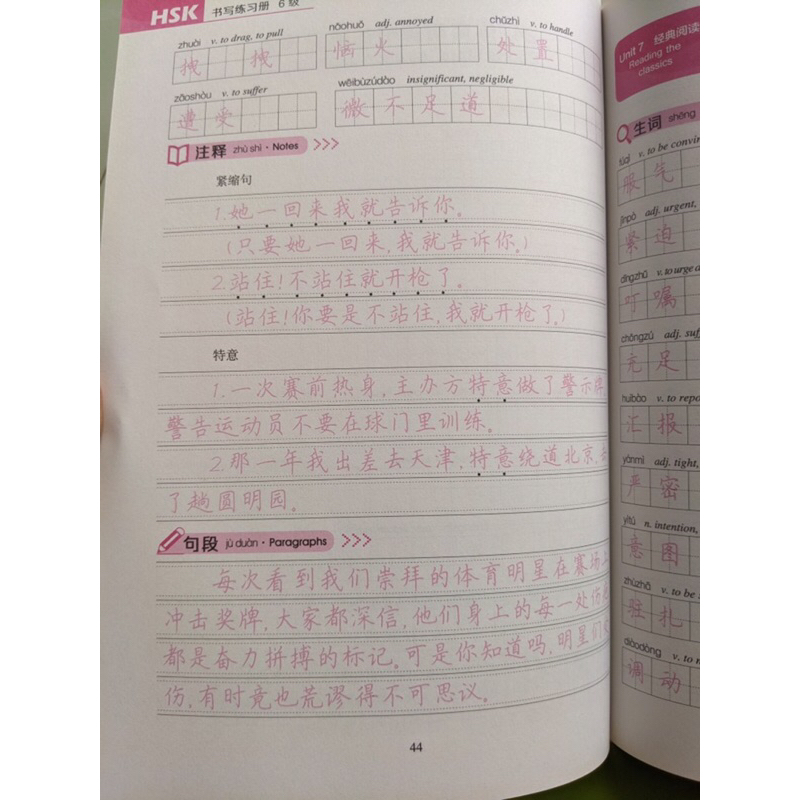 HSK 书写练习册 6级
zhuài v. to drag, to pull
拽 拽
nǎohuǒ adj. annoyed
恼火
chǔzhì v. to handle
处置
zāoshòu v. to suffer
遭受
wēibùzúdào insignificant, negligible
微不足道
注释 zhùshì · Notes
紧缩句
1.她一回来我就告诉你。
(只要她一回来,我就告诉你。)
2.站住!不站住就开枪了。
(站住!你要是不站住,我就开枪了。)
特意
1.一次赛前热身,主办方特意做了警示牌
警告运动员不要在球门里训练。
2.那一年我出差去天津,特意绕道北京,去
了趟圆明园。
句段 jùduàn · Paragraphs
每次看到我们崇拜的体育明星在赛场上
冲击奖牌,大家都深信,他们身上的每一处伤
都是奋力拼搏的标记。可是你知道吗,明星们
伤,有时竟也荒谬得不可思议。
44
Unit 7 经典阅读
Reading the
classics
生词 shēng
fúqì v. to be convin
服气
jǐnpò adj. urgent,
紧迫
dīngzhǔ v. to urge a
叮嘱
chōngzú adj. suf
充足
huìbào v. to repo
汇报
yánmì adj. tight,
严密
yìtú n. intention,
意图
zhùzhā v. to be s
驻扎
diàodòng v. to m
调动